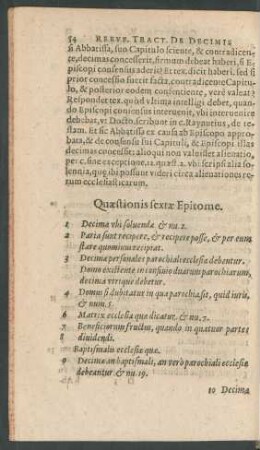 54 REBVF. TRACT. DE DECIMIS
si Abbatissa, suo Capitulo sciente, & contradicen-
te, decimas concesserit, firmum debeat haberi, si E-
piscopi consensus aderit? Et tex. dicit haberi. sed si
prior concessio fuerit facta, contradicente Capitu-
lo, & posterior eodem consentiente, vere valeat?
Respondet tex. quòd vltima intelligi debet, quan-
do Episcopi consensus interuenit, vbi interuenire
debebat, vt Docto. scribunt in c. Raynutius, de te-
stam. Et sic Abbatissa ex causa ab Episcopo appro-
bata, & de consensu sui Capituli, & Episcopi illas
decimas concesset: alioqui non valuisset alienatio,
per c. sine exceptione. 12. quæst. 2. vbi scripsi alia so-
lennia, quæ ibi possunt videri circa alienationes re-
rum ecclesiasticarum.
Quæstionis sextæ Epitome.
1 Decimæ vbi soluendæ & nu. 2.
2 Pacta sunt recipere, & recipere posse, & per eum
stare quominus recipiat.
3 Decimæ personales parochiali ecclesiæ debentur.
Domo existente in confinio duarum parochiarum,
decima vtrique debetur.
4 Domus si dubitatur in qua parochia sit, quid iuris,
& num. 5.
6 Matrix ecclesia quæ dicatur. & nu. 7.
7 Beneficiorum fructus, quando in quatuor partes
8 diuidendi.
Baptismalis ecclesia quæ.
9 Decimæ an baptismali, an verò parochiali ecclesiæ
debeantur & nu. 19.
10 Decima